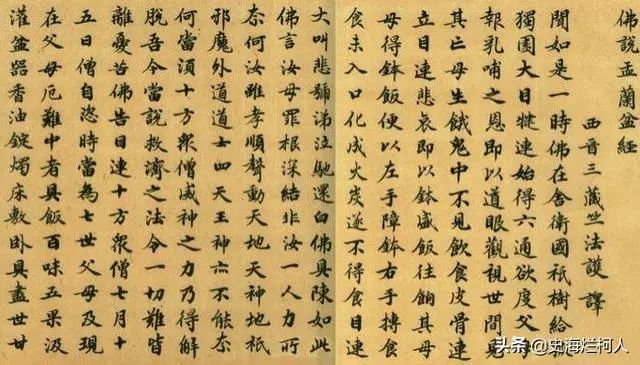 佛說盂蘭盆經
西晉三藏竺法護譯
聞如是一時佛在舍衛國祇樹給孤
獨園大目犍連始得六通欲度父母
報乳哺之恩即以道眼觀視世間見
其亡母生餓鬼中不見飲食皮骨連
立目連悲哀即以鉢盛飯往餉其母
母得鉢飯便以左手障鉢右手摶食
食未入口化成火炭遂不得食目連
大叫悲號涕泣馳還白佛具陳如此
佛言汝母罪根深結非汝一人力所
奈何汝雖孝順聲動天地天神地祇
邪魔外道道士四天王神亦不能奈
何當須十方眾僧威神之力乃得解
脫吾今當說救濟之法令一切難皆
離憂苦佛告目連十方眾僧七月十
五日僧自恣時當為七世父母及現
在父母厄難中者具飯百味五果汲
灌盆器香油錠燭床敷臥具盡世甘
头条 @史海烂柯人